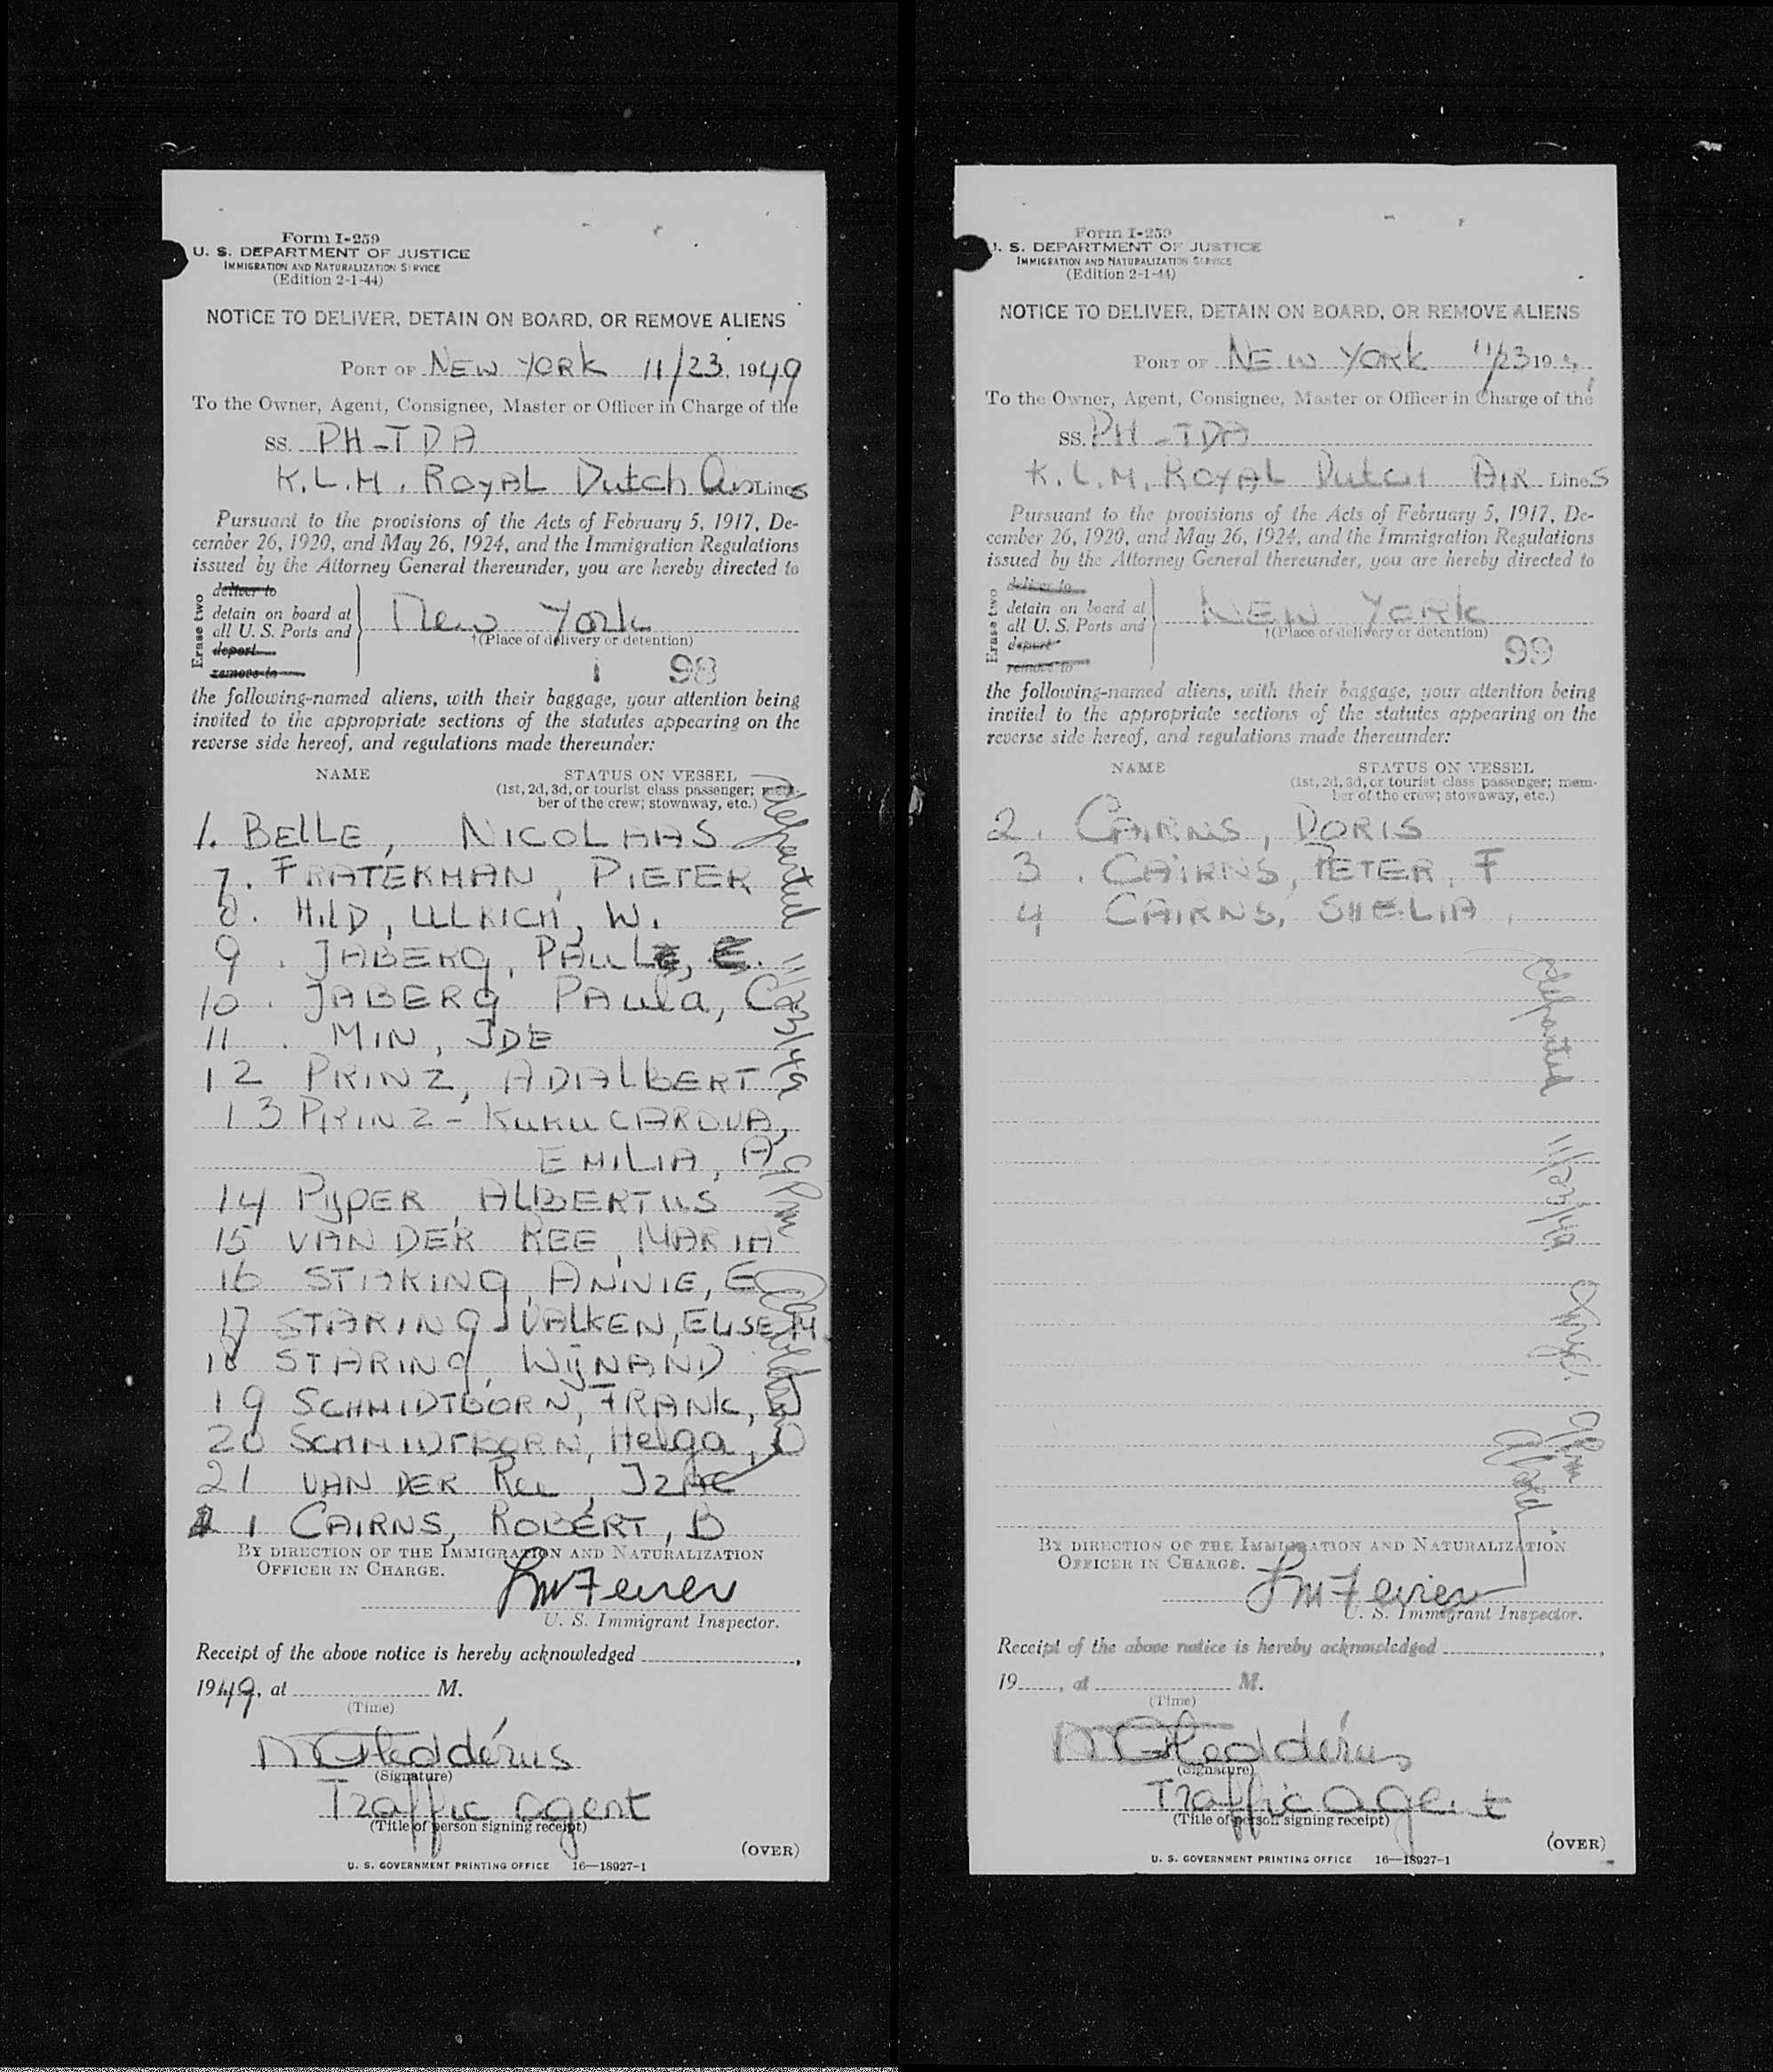 Form I-259
U. S. DEPARTMENT OF JUSTICE
IMMIGRATION AND NATURALIZATION SERVICE
(Edition 2-1-44)
NOTICE TO DELIVER, DETAIN ON BOARD, OR REMOVE ALIENS
PORT OF NEW YORK 11/23, 1949
To the Owner, Agent, Consignee, Master or Officer in Charge of the
SS. PH-TDA
K.L.M. ROYAL Dutch Air Lines
Pursuant to the provisions of the Acts of February 5, 1917, De-
cember 26, 1920, and May 26, 1924, and the Immigration Regulations
issued by the Attorney General thereunder, you are hereby directed to
Erase two
deliver to
detain on board at
all U. S. Ports and
deport
remove to
New York
†(Place of delivery or detention)
98
the following-named aliens, with their baggage, your attention being
invited to the appropriate sections of the statutes appearing on the
reverse side hereof, and regulations made thereunder:
NAME STATUS ON VESSEL
(1st, 2d, 3d, or tourist class passenger; mem-
ber of the crew; stowaway, etc.)
1. BELLE, NICOLAAS
7. FRATERMAN, PIETER
8. HILD, ULRICH, W.
9. JABERG, PAULE, E.
10. JABERG PAULA, C
11. MIN, IDE
12 PRINZ, ADALBERT
13 PRINZ-KUKUCAROVA,
EMILIA, A
14 PIJPER, ALBERTUS
15 VAN DER REE, MARIA
16 STARING, ANNIE, E
17 STARING-VALKEN, ELISE M
18 STARING, WIJNAND
19 SCHMIDTBORN, FRANK, W
20 SCHMIDTBORN, Helga, D
21 VAN DER Ree, IZAC
1 CAIRNS, ROBERT, B
departed 11/23/49 9 Pm
BY DIRECTION OF THE IMMIGRATION AND NATURALIZATION
OFFICER IN CHARGE.
U. S. Immigrant Inspector.
Receipt of the above notice is hereby acknowledged
1949, at M.
(Time)
(Signature)
Traffic agent
(Title of person signing receipt)
(OVER)
U. S. GOVERNMENT PRINTING OFFICE 16—18927-1
Form I-259
U. S. DEPARTMENT OF JUSTICE
IMMIGRATION AND NATURALIZATION SERVICE
(Edition 2-1-44)
NOTICE TO DELIVER, DETAIN ON BOARD, OR REMOVE ALIENS
PORT OF NEW YORK 11/23 19
To the Owner, Agent, Consignee, Master or Officer in Charge of the
SS. PH-TDA
K.L.M. ROYAL Dutch AIR Lines
Pursuant to the provisions of the Acts of February 5, 1917, De-
cember 26, 1920, and May 26, 1924, and the Immigration Regulations
issued by the Attorney General thereunder, you are hereby directed to
Erase two
deliver to
detain on board at
all U. S. Ports and
deport
remove to
NEW YORK
†(Place of delivery or detention)
99
the following-named aliens, with their baggage, your attention being
invited to the appropriate sections of the statutes appearing on the
reverse side hereof, and regulations made thereunder:
NAME STATUS ON VESSEL
(1st, 2d, 3d, or tourist class passenger; mem-
ber of the crew; stowaway, etc.)
2. CAIRNS, DORIS
3. CAIRNS, PETER, F
4 CAIRNS, SHELIA
departed 11/23/49 9 Pm
BY DIRECTION OF THE IMMIGRATION AND NATURALIZATION
OFFICER IN CHARGE.
U. S. Immigrant Inspector.
Receipt of the above notice is hereby acknowledged
19, at M.
(Time)
(Signature)
Traffic agent
(Title of person signing receipt)
(OVER)
U. S. GOVERNMENT PRINTING OFFICE 16—18927-1